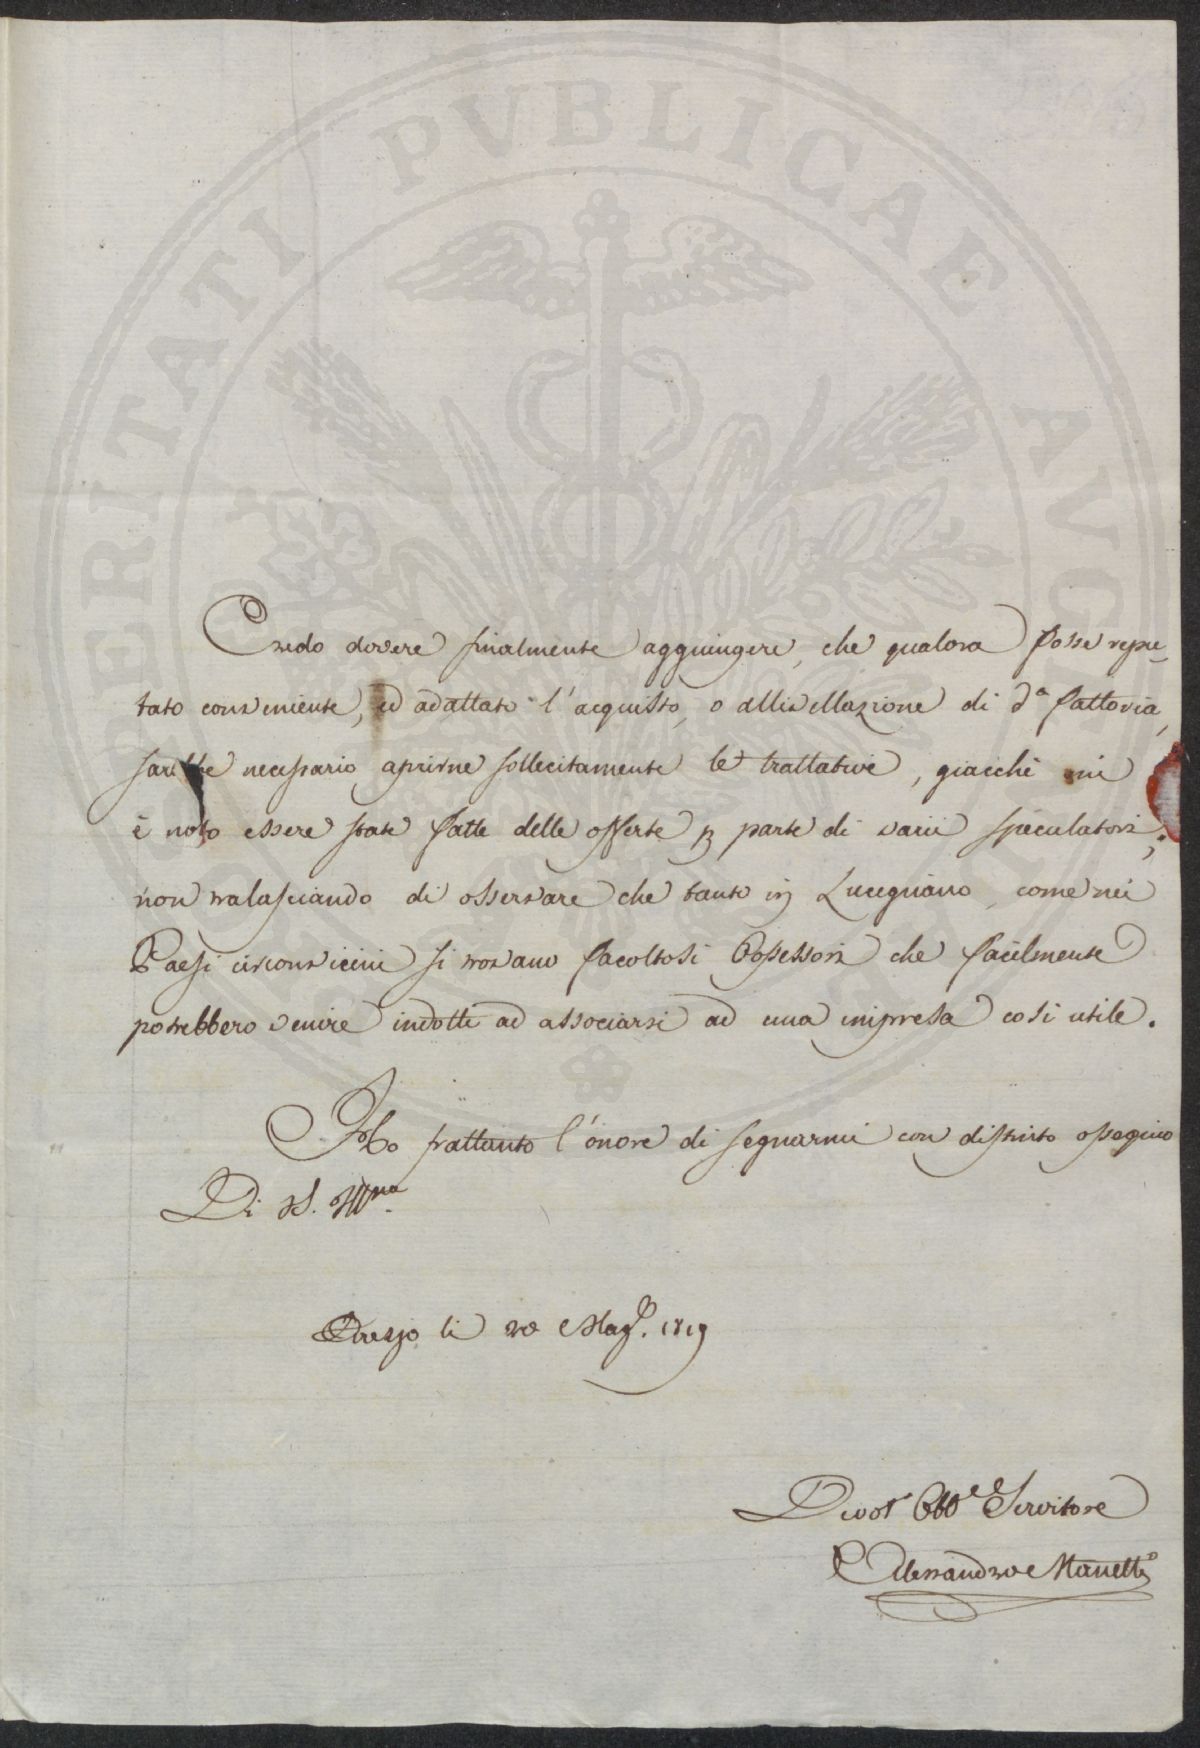 PROSPERITATI PVBLICAE AVGENDAE
Credo dovere finalmente aggiungere, che qualora fosse repu-
tato conveniente, ed adattato l'acquisto, o allivellazione di d.ª fattoria,
sarebbe necessario aprirne sollecitamente le trattative, giacchè mi
è noto essere state fatte delle offerte p parte di varii speculatori,
non tralasciando di osservare che tanto in Lucignano, come nei
Paesi circonvicini si trovano facoltosi Possessori che facilmente
potrebbero venire indotti ad associarsi ad una impresa così utile.
Ho frattanto l'onore di segnarmi con distinto ossequio
Di VS. Illma
Arezzo li 20 Magg. 1819
Devot Obb Servitore
Alessandro Manetti